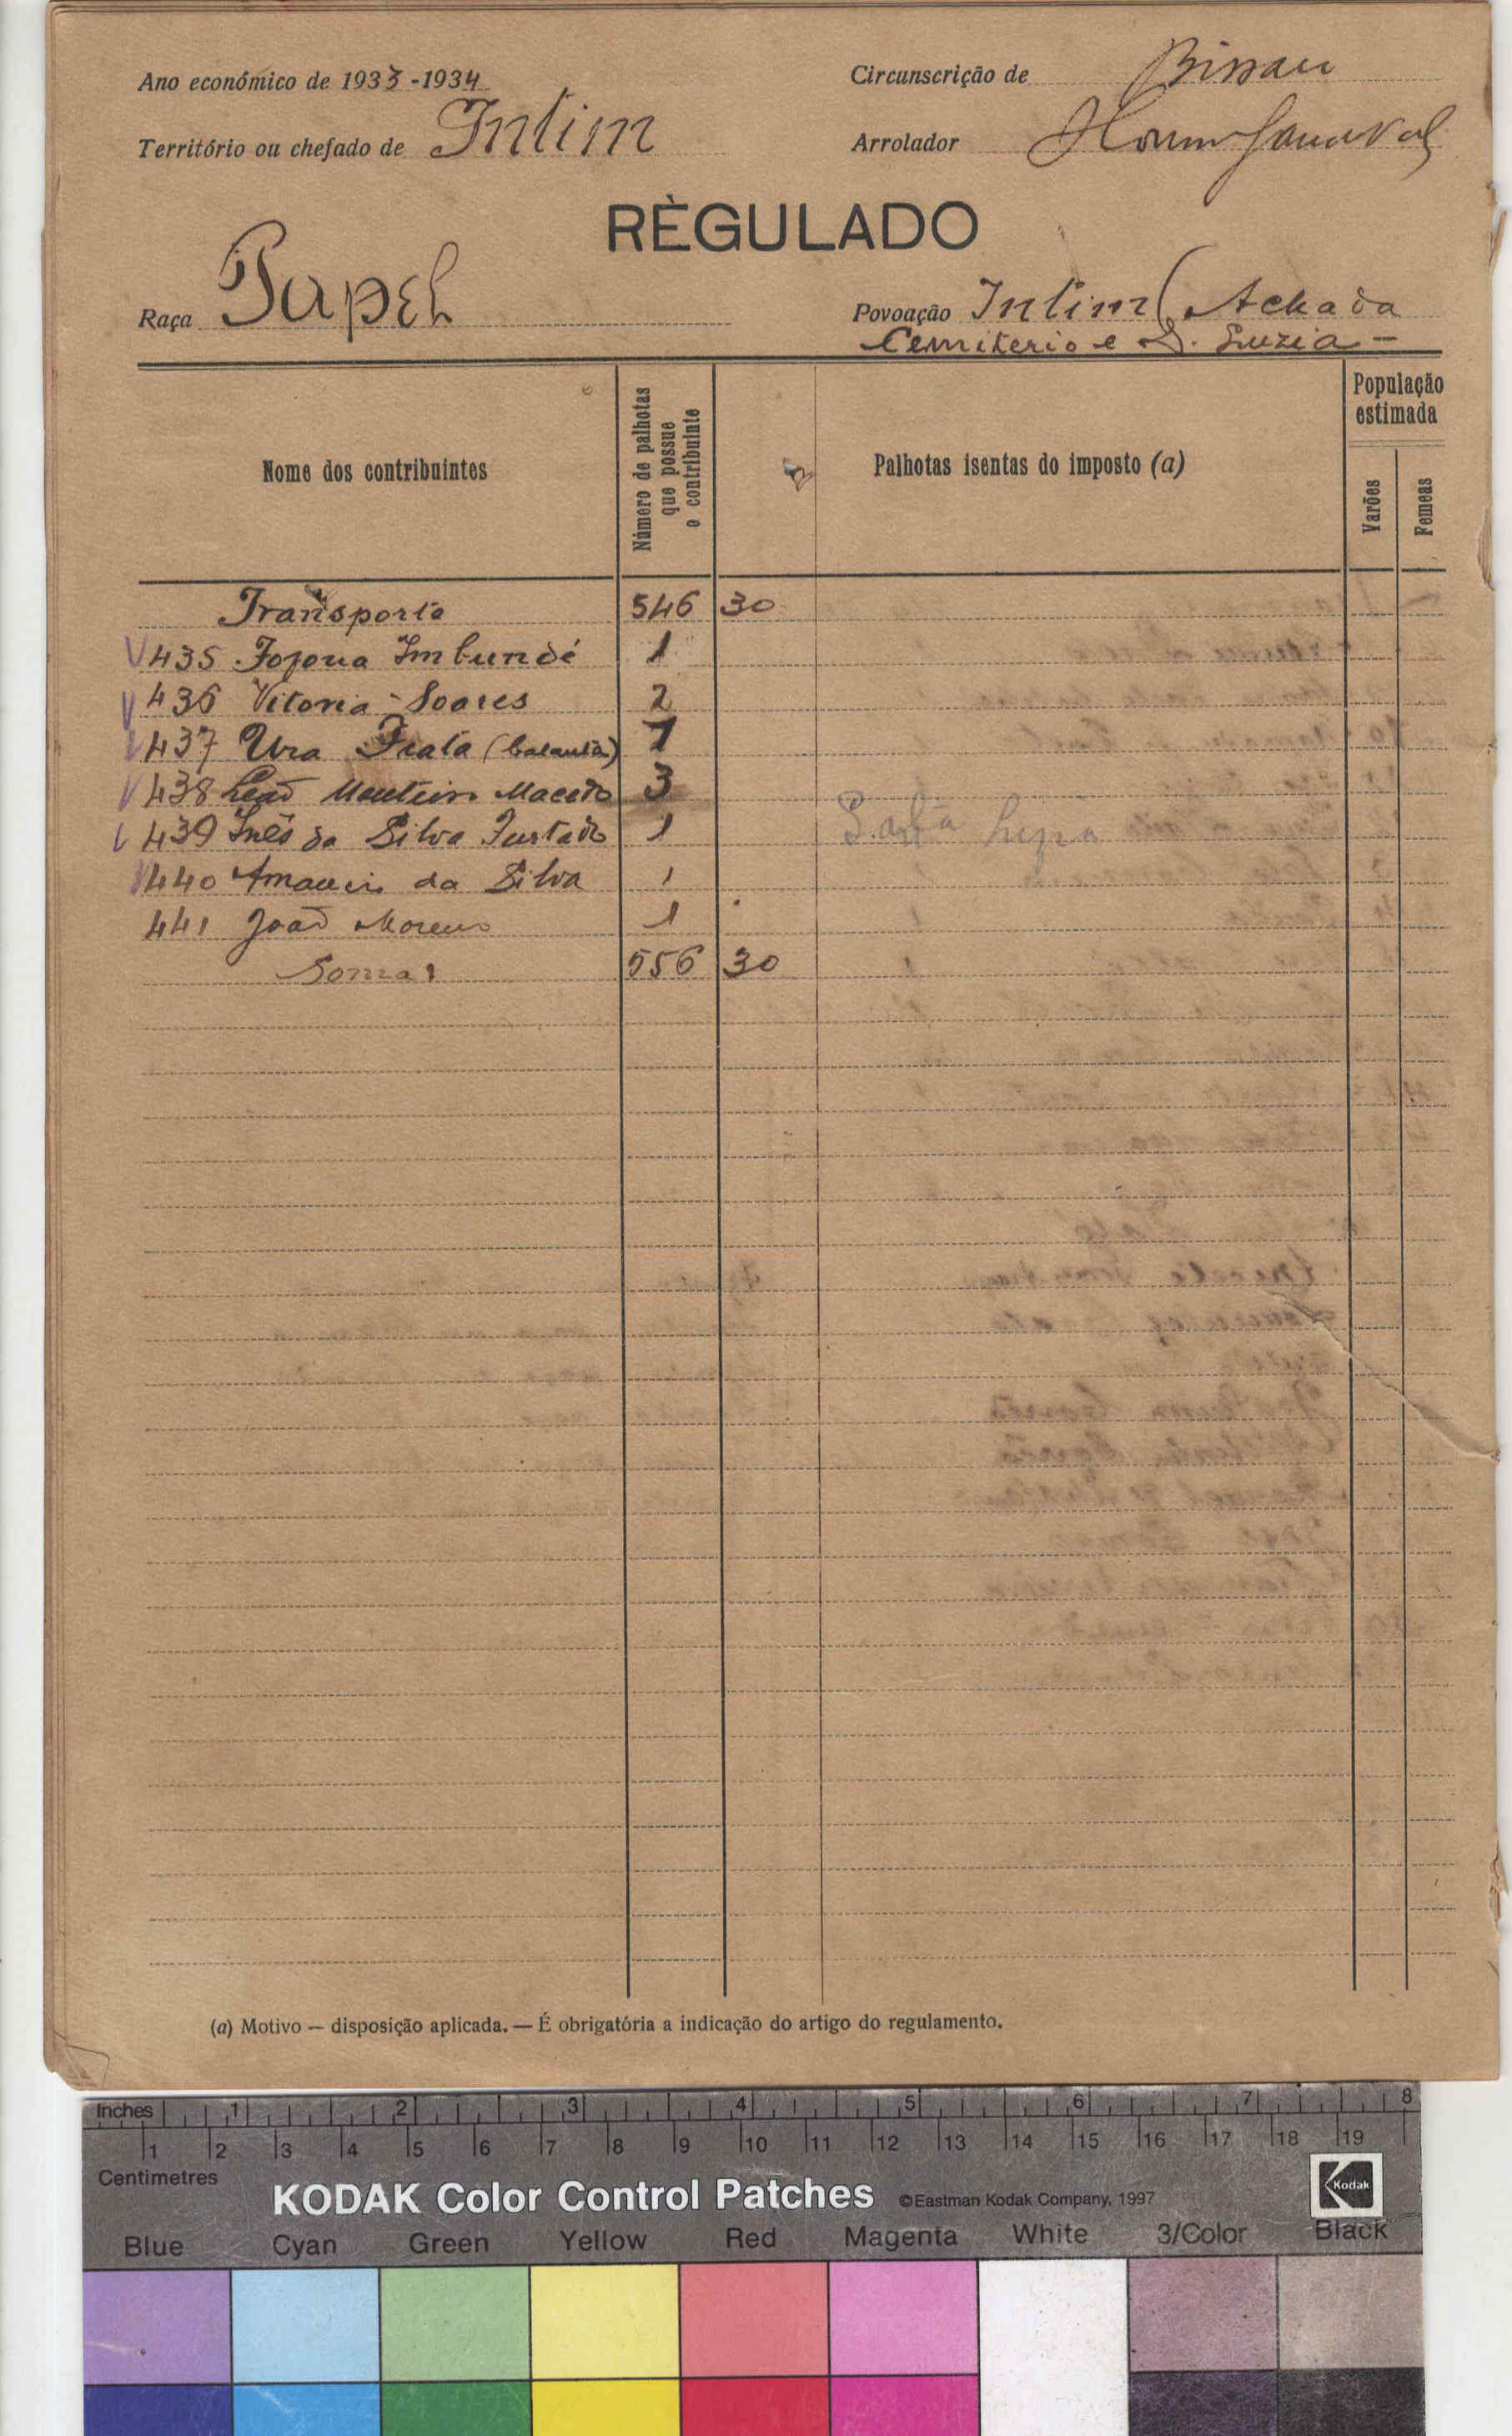 Ano económico de 1933-1934
Circunscrição de Bissau
Território ou chefado de Intim
Arrolador
RÈGULADO
Raça Papel
Povoação Intim (Achada
Cemiterio e S. Luzia -
Nome dos contribuintes
Número de palhotas que possue o contribuinte
Palhotas isentas do imposto (a)
População estimada
Varões
Femeas
Transporte 546 30
435 Imbundé 1
436 Vitoria Soares 2
437 Ura 1
438 Leão Monteiro Macedo 3
439 Inês da Silva Furtado 1 Santa Luzia
440 da Silva 1
441 João Moreno 1
Soma 556 30
(a) Motivo — disposição aplicada. — É obrigatória a indicação do artigo do regulamento.
Inches 1 2 3 4 5 6 7 8
1 2 3 4 5 6 7 8 9 10 11 12 13 14 15 16 17 18 19
Centimetres
KODAK Color Control Patches ©Eastman Kodak Company, 1997 Kodak
Blue Cyan Green Yellow Red Magenta White 3/Color Black